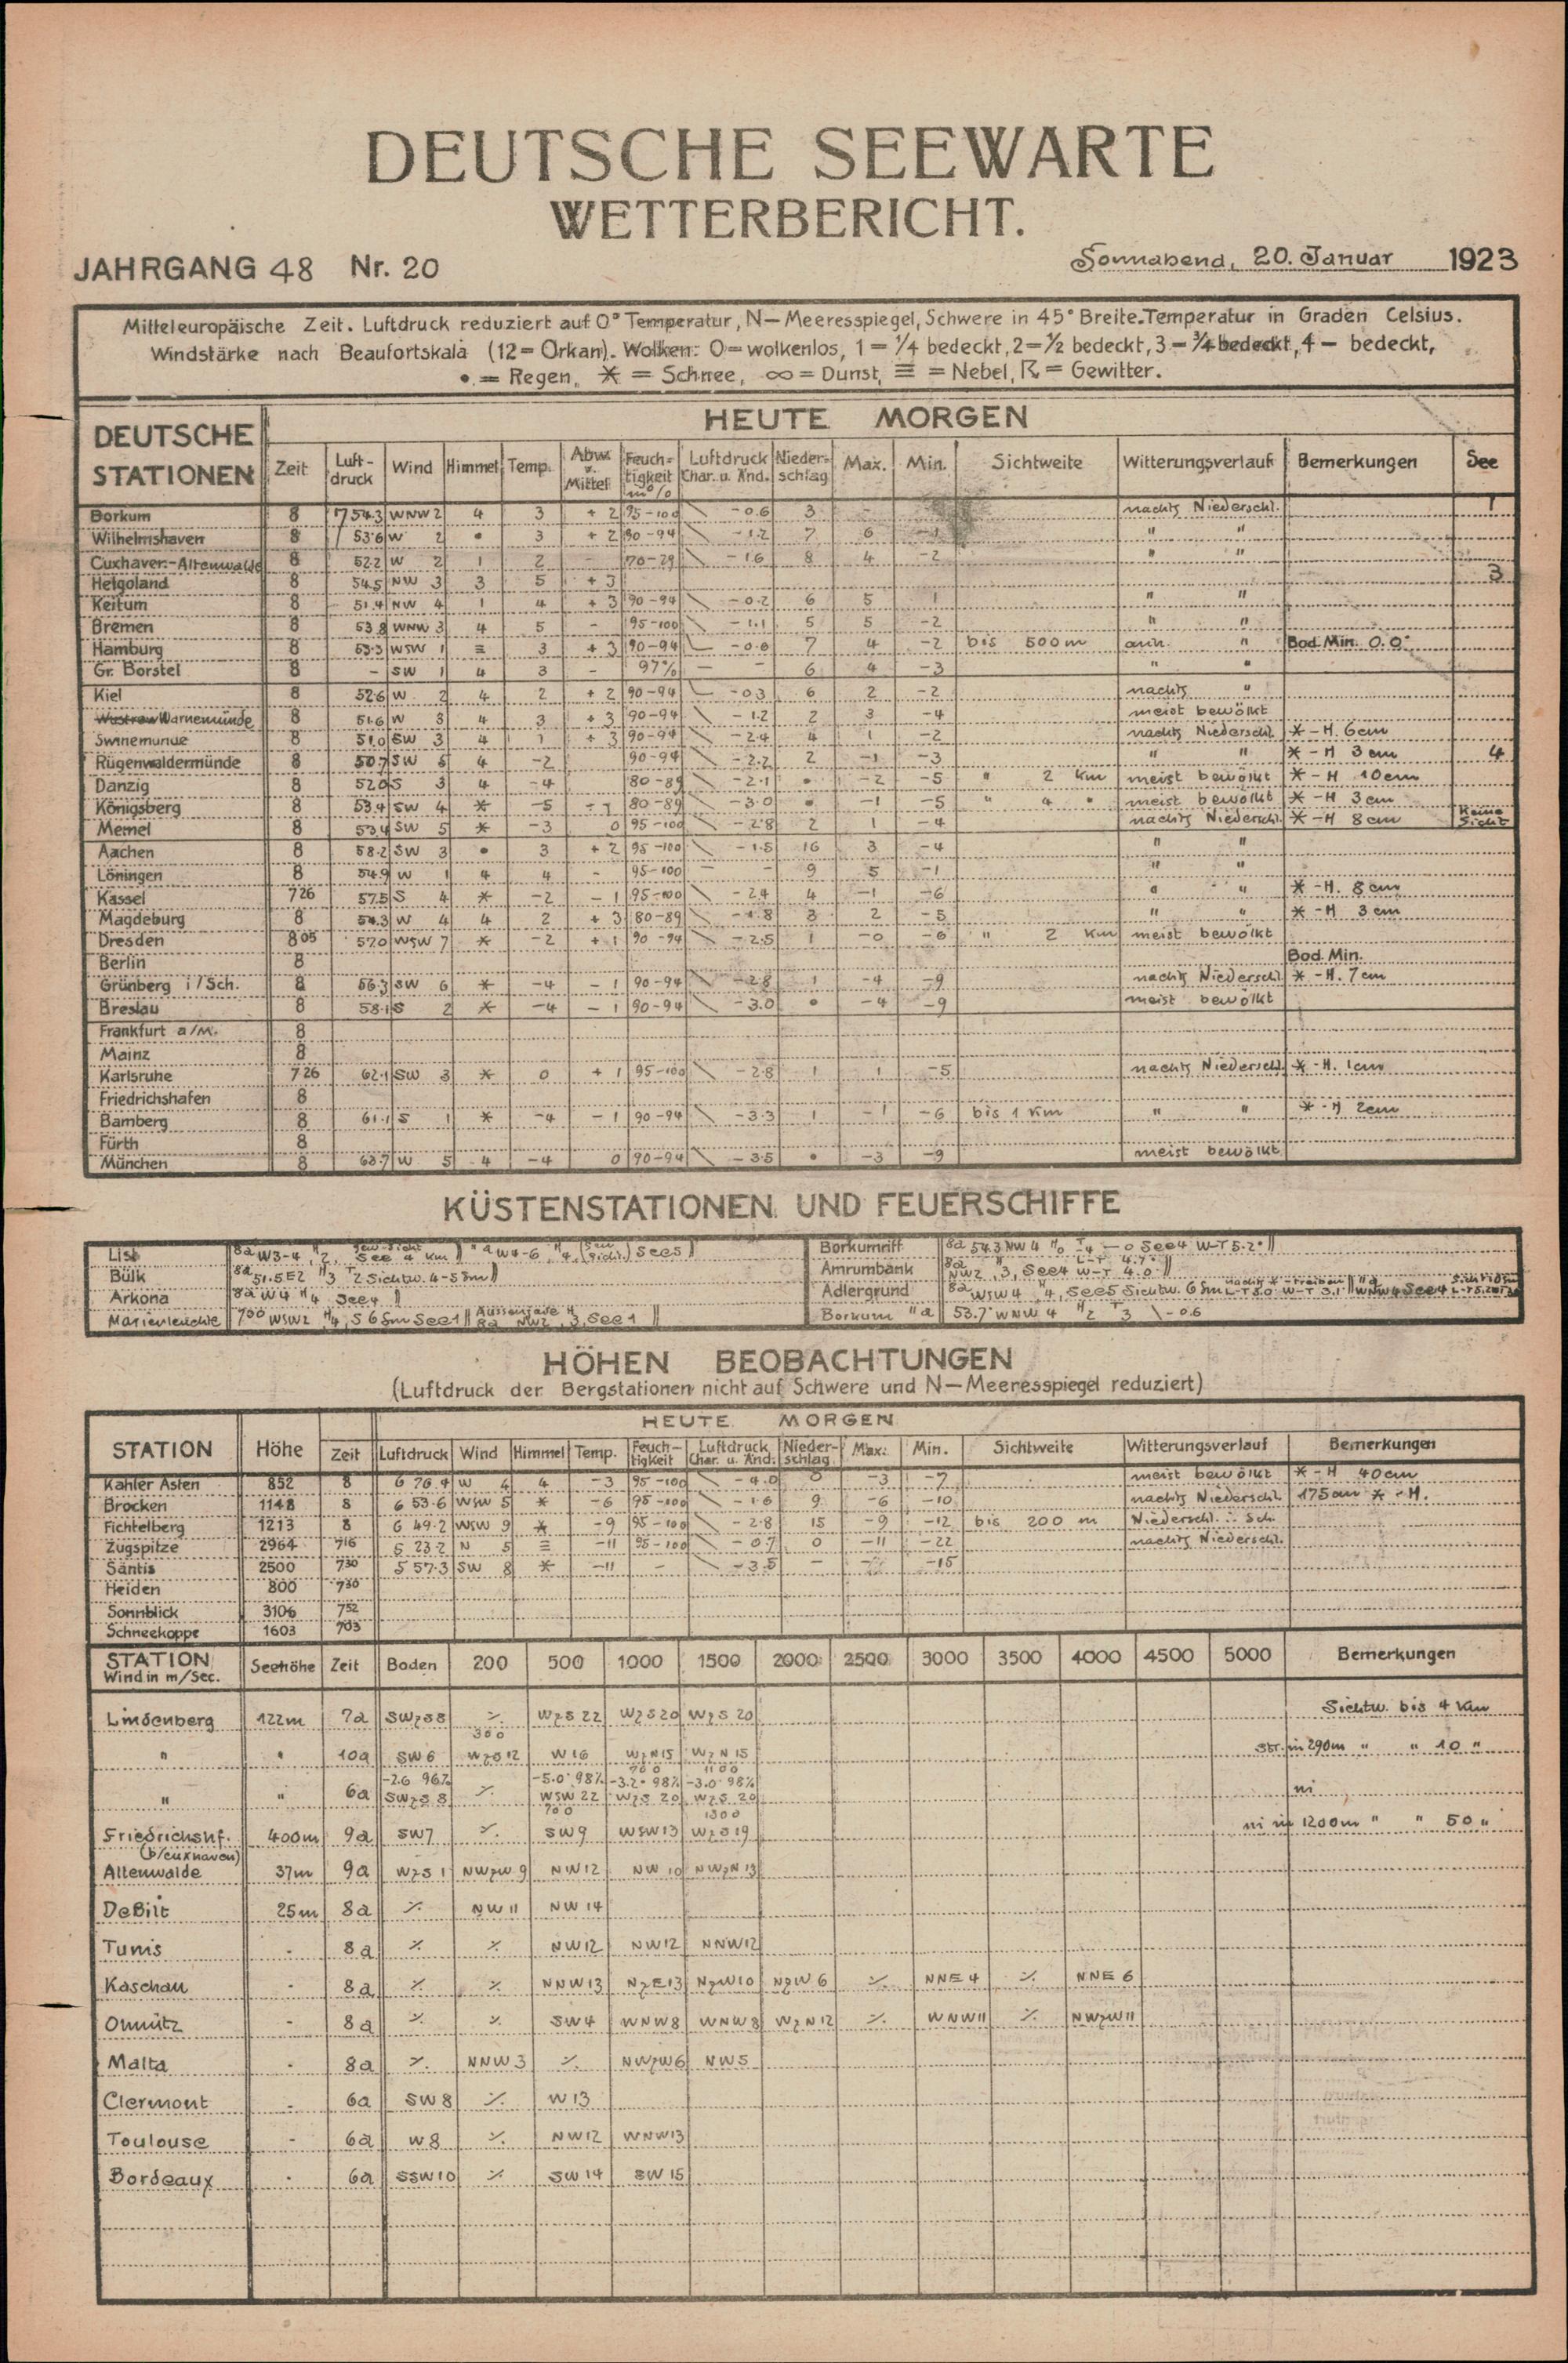 DEUTSCHE SEEWARTE
WETTERBERICHT.
JAHRGANG 48 Nr. 20 Sonnabend, 20. Januar 1923
Mitteleuropäische Zeit. Luftdruck reduziert auf 0° Temperatur, N—Meeresspiegel, Schwere in 45° Breite. Temperatur in Graden Celsius.
Windstärke nach Beaufortskala (12= Orkan). Wolken: 0=wolkenlos, 1 = ¼ bedeckt, 2=½ bedeckt, 3 = ¾ bedeckt, 4 — bedeckt,
• = Regen, ✳ = Schnee, ∞ = Dunst, ≡ = Nebel, ☈ = Gewitter.
DEUTSCHE STATIONEN HEUTE MORGEN
Zeit Luft-druck Wind Himmel Temp. Abw. v. Mittel Feuch-tigkeit in % Luftdruck Char. u. Änd. Nieder-schlag Max. Min. Sichtweite Witterungsverlauf Bemerkungen See
Borkum 8 754.3 WNW 2 4 3 + 2 95-100 \ -0.6 3 - nachts Niederschl. 1
Wilhelmshaven 8 53.6 W 2 • 3 + 2 90-94 \ -1.2 7 6 -1 " "
Cuxhaven-Altenwalde 8 52.2 W 2 1 2 - 70-79 \ -1.6 8 4 -2 " "
Helgoland 8 54.5 NW 3 3 5 + 3 3
Keitum 8 51.4 NW 4 1 4 + 3 90-94 \ -0.2 6 5 1 " "
Bremen 8 53.8 WNW 3 4 5 - 95-100 \ -1.1 5 5 -2 " "
Hamburg 8 53.3 WSW 1 ≡ 3 + 3 90-94 -0.6 7 4 -2 bis 500 m " Bod. Min. 0.0°
Gr. Borstel 8 - SW 1 4 3 - 97% — - 6 4 -3 " "
Kiel 8 52.6 W 2 4 2 + 2 90-94 -0.3 6 2 -2 nachts "
Wustrow Warnemünde 8 51.6 W 3 4 3 + 3 90-94 \ -1.2 2 3 -4 meist bewölkt
Swinemünde 8 51.0 SW 3 4 1 + 3 90-94 \ -2.4 4 1 -2 nachts Niederschl. ✳ - H. 6cm
Rügenwaldermünde 8 50.7 SW 5 4 -2 90-94 \ -2.2 2 -1 -3 " " ✳ - H 3 cm 4
Danzig 8 52.0 S 3 4 -4 80-89 \ -2.1 • -2 -5 " 2 Km meist bewölkt ✳ - H 10 cm
Königsberg 8 53.4 SW 4 ✳ -5 80-89 \ -3.0 • -1 -5 " 4 " meist bewölkt ✳ - H 3 cm
Memel 8 53.4 SW 5 ✳ -3 0 95-100 \ -2.8 2 1 -4 nachts Niederschl. ✳ - H 8 cm Keine Sicht
Aachen 8 58.2 SW 3 • 3 + 2 95-100 \ -1.5 16 3 -4 " "
Löningen 8 54.9 W 1 4 4 - 95-100 — - 9 5 -1 " "
Kassel 7 26 57.5 S 4 ✳ -2 - 1 95-100 \ -2.4 4 -1 -6 " " ✳ - H. 8 cm
Magdeburg 8 54.3 W 4 4 2 + 3 80-89 \ -1.8 3 2 -5 " " ✳ - H 3 cm
Dresden 8 05 57.0 WSW 7 ✳ -2 + 1 90-94 \ -2.5 1 -0 -6 " 2 Km meist bewölkt
Berlin 8 Bod. Min.
Grünberg i/Sch. 8 56.3 SW 6 ✳ -4 - 1 90-94 \ -2.8 1 -4 -9 nachts Niederschl. ✳ - H. 7 cm
Breslau 8 58.1 S 2 ✳ -4 - 1 90-94 \ -3.0 • -4 -9 meist bewölkt
Frankfurt a/M. 8
Mainz 8
Karlsruhe 7 26 62.1 SW 3 ✳ 0 + 1 95-100 \ -2.8 1 1 -5 nachts Niederschl. ✳ - H. 1cm
Friedrichshafen 8
Bamberg 8 61.1 S 1 ✳ -4 - 1 90-94 \ -3.3 1 -1 -6 bis 1 Km " " ✳ - H 2cm
Fürth 8
München 8 63.7 W 5 4 -4 0 90-94 \ -3.5 • -3 -9 meist bewölkt
KÜSTENSTATIONEN UND FEUERSCHIFFE
List 8a W3-4 H2 See 4 Km || "a W4-6 H4 See5 ||
Borkumriff 8a 54.3 NW 4 H0 T4 — 0 See4 W-T 5.2° ||
Bülk 8a 51.5 E2 H3 T2 Sichtw. 4-5 sm ||
Amrumbank 8a NW2, 3, See4 W-T 4.0 L-T 4.7° ||
Arkona 8a W4 H4 See4 ||
Adlergrund 8a WSW4 H4, See5 Sichtw. 6 sm L-T 3.0 W-T 3.1 || "a WNW4 See4
Marienleuchte 7 00 WSW2 H4, S 6 sm See1 || 8a NW2 H3, See 1 ||
Borkum "a 53.7 WNW 4 H2 T3 \ -0.6
HÖHEN BEOBACHTUNGEN
(Luftdruck der Bergstationen nicht auf Schwere und N—Meeresspiegel reduziert)
STATION Höhe HEUTE MORGEN
Zeit Luftdruck Wind Himmel Temp. Feuch-tigkeit Luftdruck Char. u. Änd. Nieder-schlag Max. Min. Sichtweite Witterungsverlauf Bemerkungen
Kahler Asten 852 8 6 76.4 W 4 4 -3 95-100 \ -4.0 0 -3 -7 meist bewölkt ✳ - H 40 cm
Brocken 1148 8 6 53.6 WSW 5 ✳ -6 95-100 \ -1.6 9 -6 -10 nachts Niederschl. 175 cm ✳ - H.
Fichtelberg 1213 8 6 49.2 WSW 9 ✳ -9 95-100 \ -2.8 15 -9 -12 bis 200 m Niederschl. Sch.
Zugspitze 2964 7 16 5 23.2 N 5 ≡ -11 95-100 \ -0.7 0 -11 -22 nachts Niederschl.
Säntis 2500 7 30 5 57.3 SW 8 ✳ -11 - \ -3.5 - - -15
Heiden 800 7 30
Sonnblick 3106 7 52
Schneekoppe 1603 7 03
STATION Wind in m/Sec. Seehöhe Zeit Boden 200 500 1000 1500 2000 2500 3000 3500 4000 4500 5000 Bemerkungen
Lindenberg 122m 7a SWzS8 ⁒ WzS 22 WzS 20 WzS 20 Sichtw. bis 4 Km
300
" " 10a SW6 WzS 12 W16 WzN15 WzN 15 Str. in 290m " " 10 "
700 1100
" " 6a -2.6 96% SWzS 8 ⁒ -5.0° 98% WSW 22 -3.2° 98% WzS 20 -3.0° 98% WzS 20 ni
700 1300
Friedrichshf. 400m 9a SW7 ⁒ SW9 WSW13 WzS19 ni in 1200m " " 50 "
(b/Cuxhaven)
Altenwalde 37m 9a WzS 1 NWzW 9 NW12 NW 10 NWzN 13
DeBilt 25m 8a ⁒ NW 11 NW 14
Tunis - 8a ⁒ ⁒ NW12 NW12 NNW12
Kaschau - 8a ⁒ ⁒ NNW13 NzE13 NzW10 NzW 6 ⁒ NNE 4 ⁒ NNE 6
Olmütz - 8a ⁒ ⁒ SW4 WNW8 WNW8 WzN 12 ⁒ WNW11 ⁒ NWzW11
Malta - 8a ⁒ NNW 3 ⁒ NWzW6 NW5
Clermont - 6a SW8 ⁒ W 13
Toulouse - 6a W8 ⁒ NW12 WNW13
Bordeaux - 6a SSW10 ⁒ SW 14 SW 15